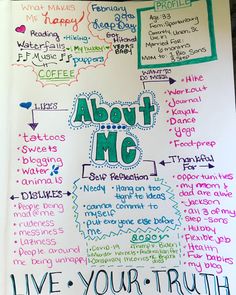 What Makes
Me happy?
Reading
Waterfalls
♪ Music ♪
COFFEE
•Hiking•
•My hubby•
puppers
February
29th
Leap Day
Got Hitched
VEGAS
BABY
PROFILE
Age: 33
From: Spartanburg
County: Union, SC
Married For:
6 months
Mom to: 3 Step Sons
WANT TO
DO MORE
• Hike
• Workout
• Journal
• Kayak
• Dance
• Yoga
• Food-prep
LIKES
• tattoos
• Sweets
• blogging
• Water
• animals
About
ME
DISLIKES
• People being
mad@me
• rudeness
• messiness
• laziness
• People around
me being unhappy
Self Reflection
• Needy
• Hang on too
tight to ideas
• cannot commit to
myself
• put everyone else before
me
2020:
• Covid-19
• Murder Hornets
• Conspiracy theories
Thankful
For
• opportunities
• my mom &
dad are alive
• Jackson
• all 3 of my
step-sons
• Hubby
• Flexible job
• Health
• Fur babies
• my blog
LIVE • YOUR • TRUTH